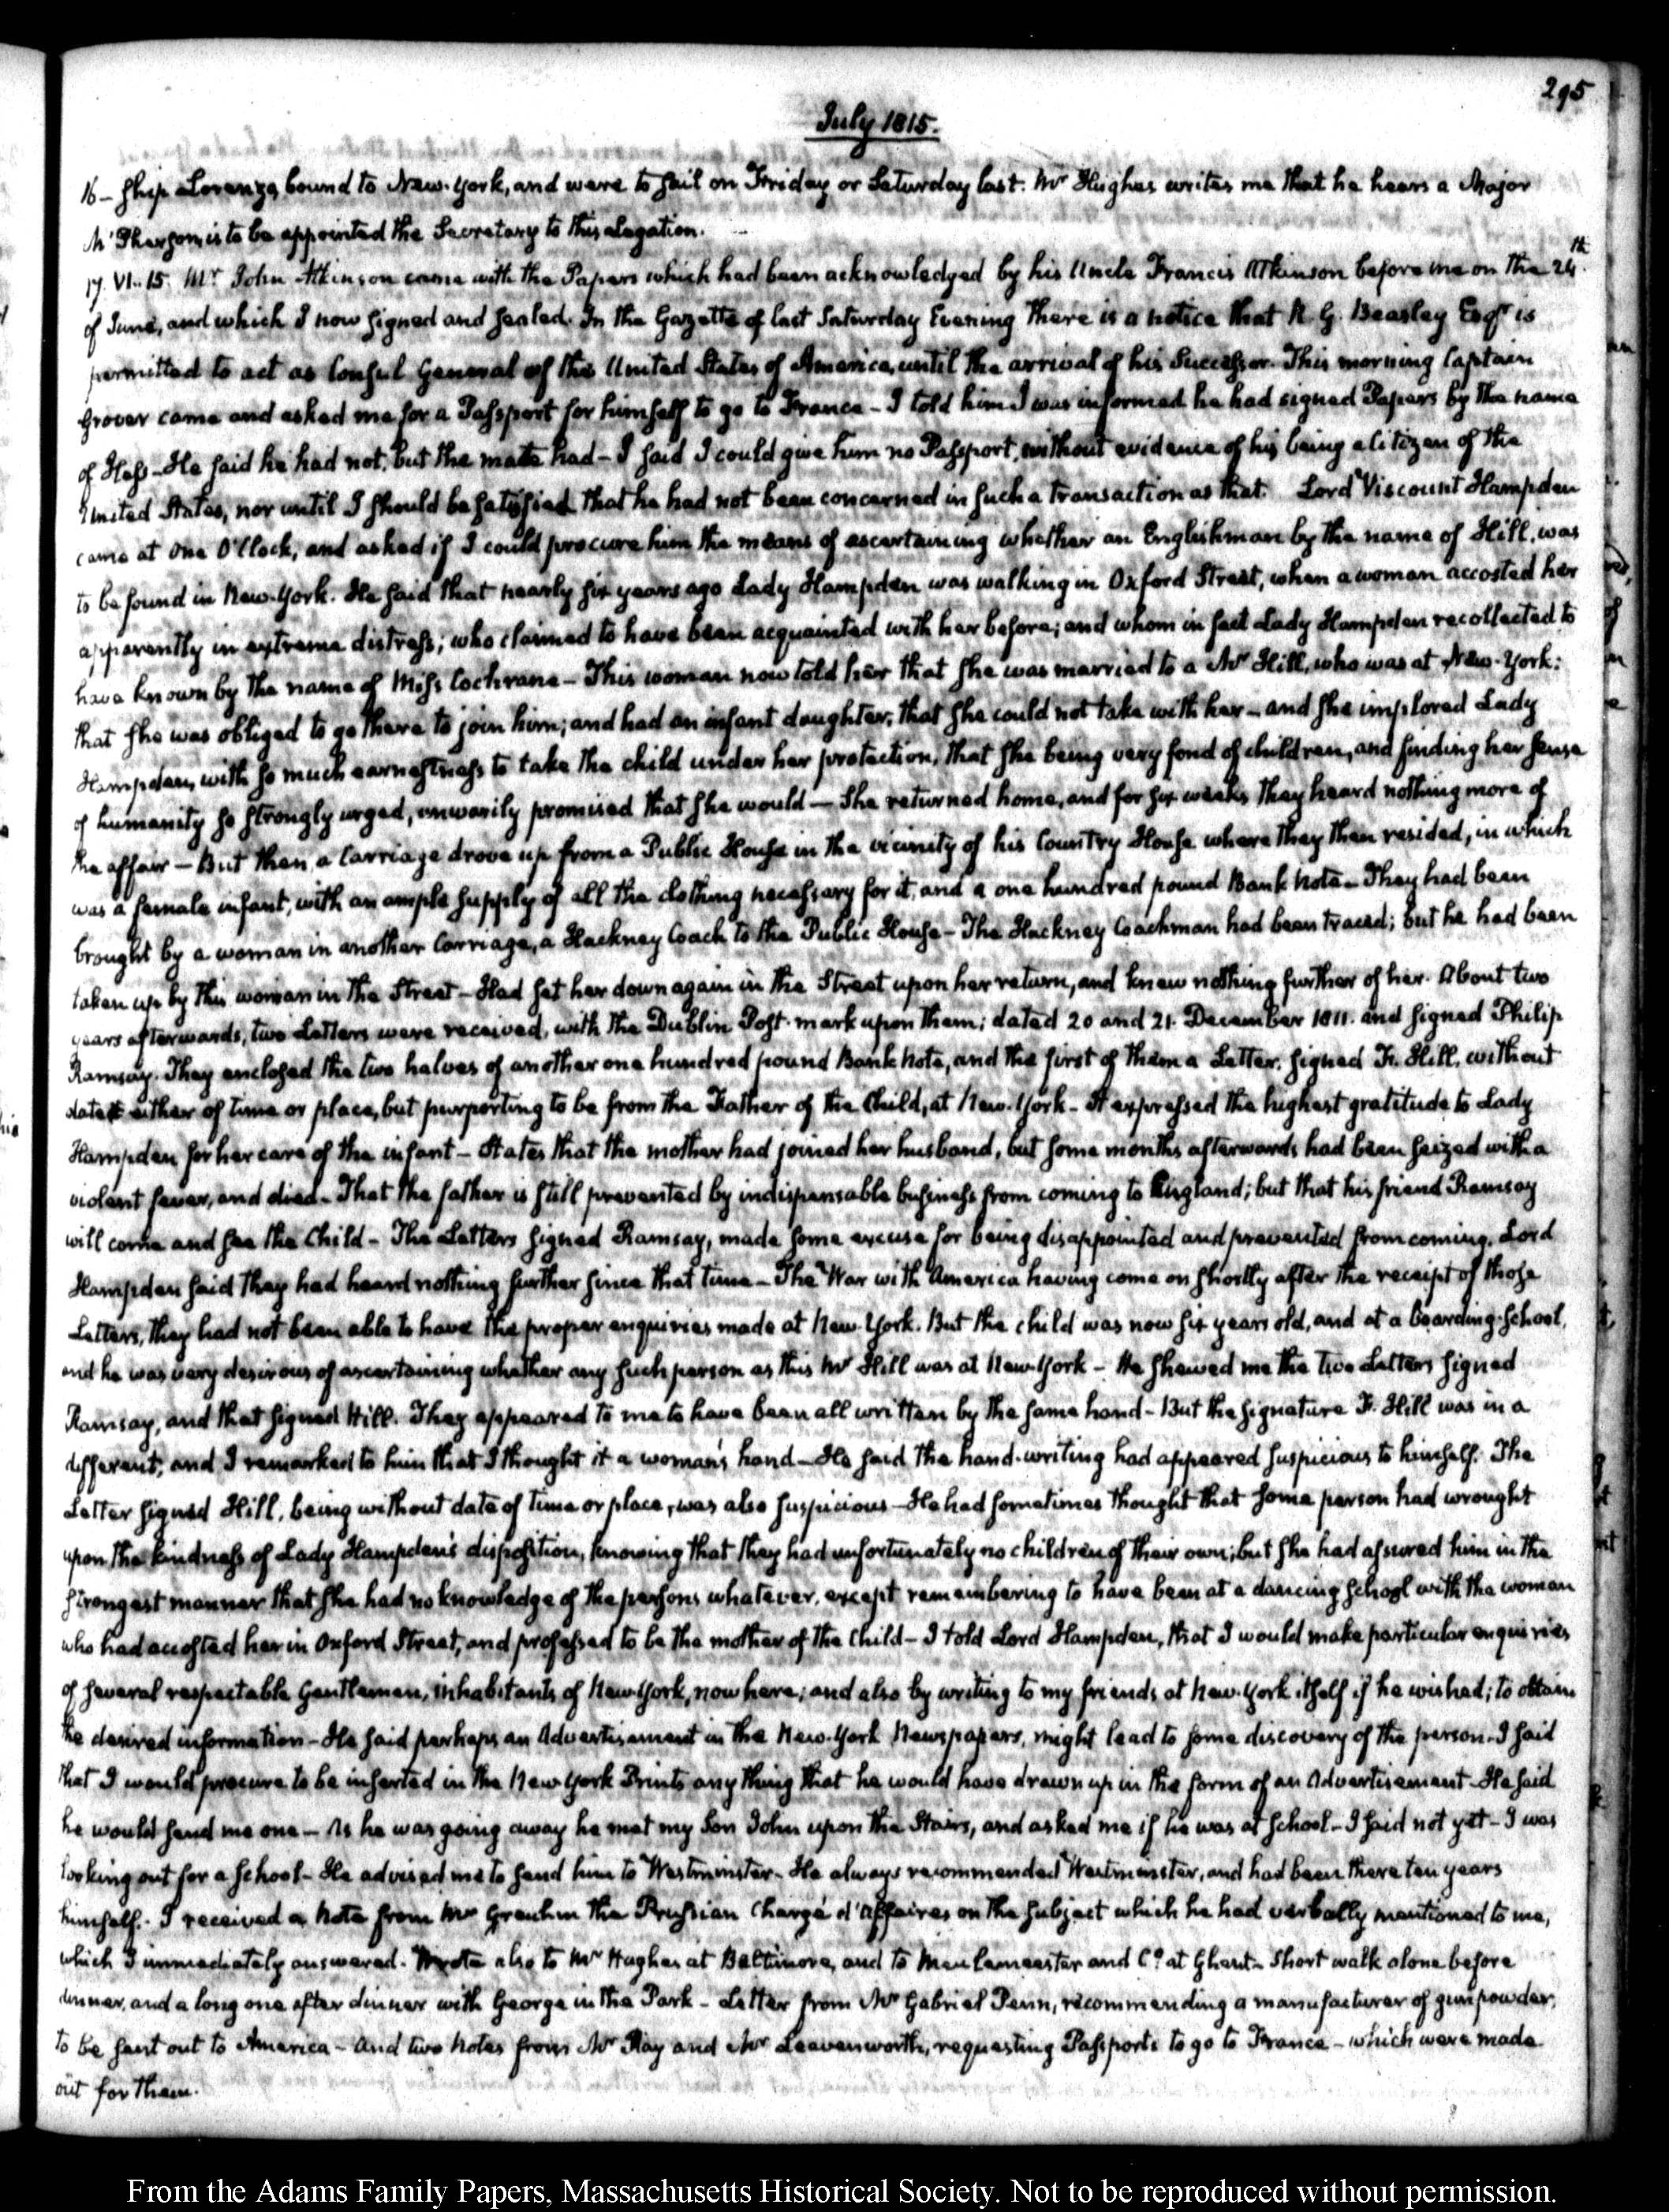 295
July 1815.
16 – Ship Lorenzo, bound to New-York, and were to sail on Friday or Saturday last. Mr Hughes writes me that he hears a Major
M'Pherson is to be appointed the Secretary to this Legation.
17. VI..15. Mr John Atkinson came with the Papers which had been acknowledged by his Uncle Francis Atkinson before me on the 24th
of June, and which I now signed and sealed. In the Gazette of last Saturday Evening there is a notice that R. G. Beasley Esqr is
permitted to act as Consul General of the United States of America, until the arrival of his Successor. This morning Captain
Grover came and asked me for a Passport for himself to go to France – I told him I was informed he had signed Papers by the name
of Hess – He said he had not, but the mate had – I said I could give him no Passport, without evidence of his being a Citizen of the
United States, nor until I should be satisfied that he had not been concerned in such a transaction as that. Lord Viscount Hampden
came at one O'Clock, and asked if I could procure him the means of ascertaining whether an Englishman by the name of Hill, was
to be found in New-York. He said that nearly six years ago Lady Hampden was walking in Oxford Street, when a woman accosted her
apparently in extreme distress; who claimed to have been acquainted with her before; and whom in fact Lady Hampden recollected to
have known by the name of Miss Cochrane – This woman now told her that she was married to a Mr Hill, who was at New-York:
that she was obliged to go there to join him; and had an infant daughter, that she could not take with her – and she implored Lady
Hampden, with so much earnestness to take the child under her protection, that she being very fond of children, and finding her sense
of humanity so strongly urged, unwarily promised that she would – She returned home, and for six weeks they heard nothing more of
the affair – But then, a Carriage drove up from a Public House in the vicinity of his Country House where they then resided, in which
was a female infant, with an ample supply of all the clothing necessary for it, and a one hundred pound Bank Note – They had been
brought by a woman in another Carriage, a Hackney Coach to the Public House – The Hackney Coachman had been traced; but he had been
taken up by this woman in the Street – Had set her down again in the Street upon her return, and knew nothing further of her. About two
years afterwards, two Letters were received, with the Dublin Post-mark upon them; dated 20 and 21. December 1811. and signed Philip
Ramsay. They enclosed the two halves of another one hundred pound Bank Note, and the first of them a Letter, signed Fr. Hill, without
date either of time or place, but purporting to be from the Father of the Child, at New-York – It expressed the highest gratitude to Lady
Hampden for her care of the infant – States that the mother had joined her husband, but some months afterwards had been seized with a
violent fever, and died – That the father is still prevented by indispensable business from coming to England; but that his friend Ramsay
will come and see the Child – The Letters signed Ramsay, made some excuse for being disappointed and prevented from coming. Lord
Hampden said they had heard nothing further since that time – The War with America having come on shortly after the receipt of those
Letters, they had not been able to have the proper enquiries made at New-York. But the child was now six years old, and at a boarding-School,
and he was very desirous of ascertaining whether any such person as this Mr Hill was at New-York – He shewed me the two Letters signed
Ramsay, and that signed Hill. They appeared to me to have been all written by the same hand – But the signature Fr. Hill was in a
different; and I remarked to him that I thought it a woman's hand – He said the hand-writing had appeared suspicious to himself. The
Letter signed Hill, being without date of time or place, was also suspicious – He had sometimes thought that some person had wrought
upon the kindness of Lady Hampden's disposition, knowing that they had unfortunately no children of their own; but she had assured him in the
strongest manner that she had no knowledge of the persons whatever, except remembering to have been at a dancing school with the woman
who had accosted her in Oxford Street, and professed to be the mother of the Child – I told Lord Hampden, that I would make particular enquiries
of several respectable Gentlemen, inhabitants of New-York, now here; and also by writing to my friends at New-York itself if he wished; to obtain
the desired information – He said perhaps an Advertisement in the New-York Newspapers, might lead to some discovery of the person – I said
that I would procure to be inserted in the New-York Prints any thing that he would have drawn up in the form of an Advertisement – He said
he would send me one – As he was going away he met my Son John upon the Stairs, and asked me if he was at School – I said not yet – I was
looking out for a School – He advised me to send him to Westminster – He always recommended Westminster, and had been there ten years
himself. I received a Note from Mr Greuhm the Prussian Chargé d'affaires on the subject which he had verbally mentioned to me,
which I immediately answered. Wrote also to Mr Hughes at Baltimore, and to Meulemeester and Co. at Ghent – Short walk alone before
dinner, and a long one after dinner with George in the Park – Letter from Mr Gabriel Penn, recommending a manufacturer of gunpowder,
to be sent out to America – And two Notes from Mr Ray and Mr Leavenworth, requesting Passports to go to France – which were made
out for them.
From the Adams Family Papers, Massachusetts Historical Society. Not to be reproduced without permission.